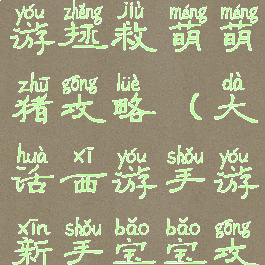 yóu zhěng jiù méng méng
游拯救萌萌
zhū gōng lüè dà
猪攻略（大
huà xī yóu shǒu yóu
话西游手游
xīn shǒu bǎo bǎo gōng
新手宝宝攻